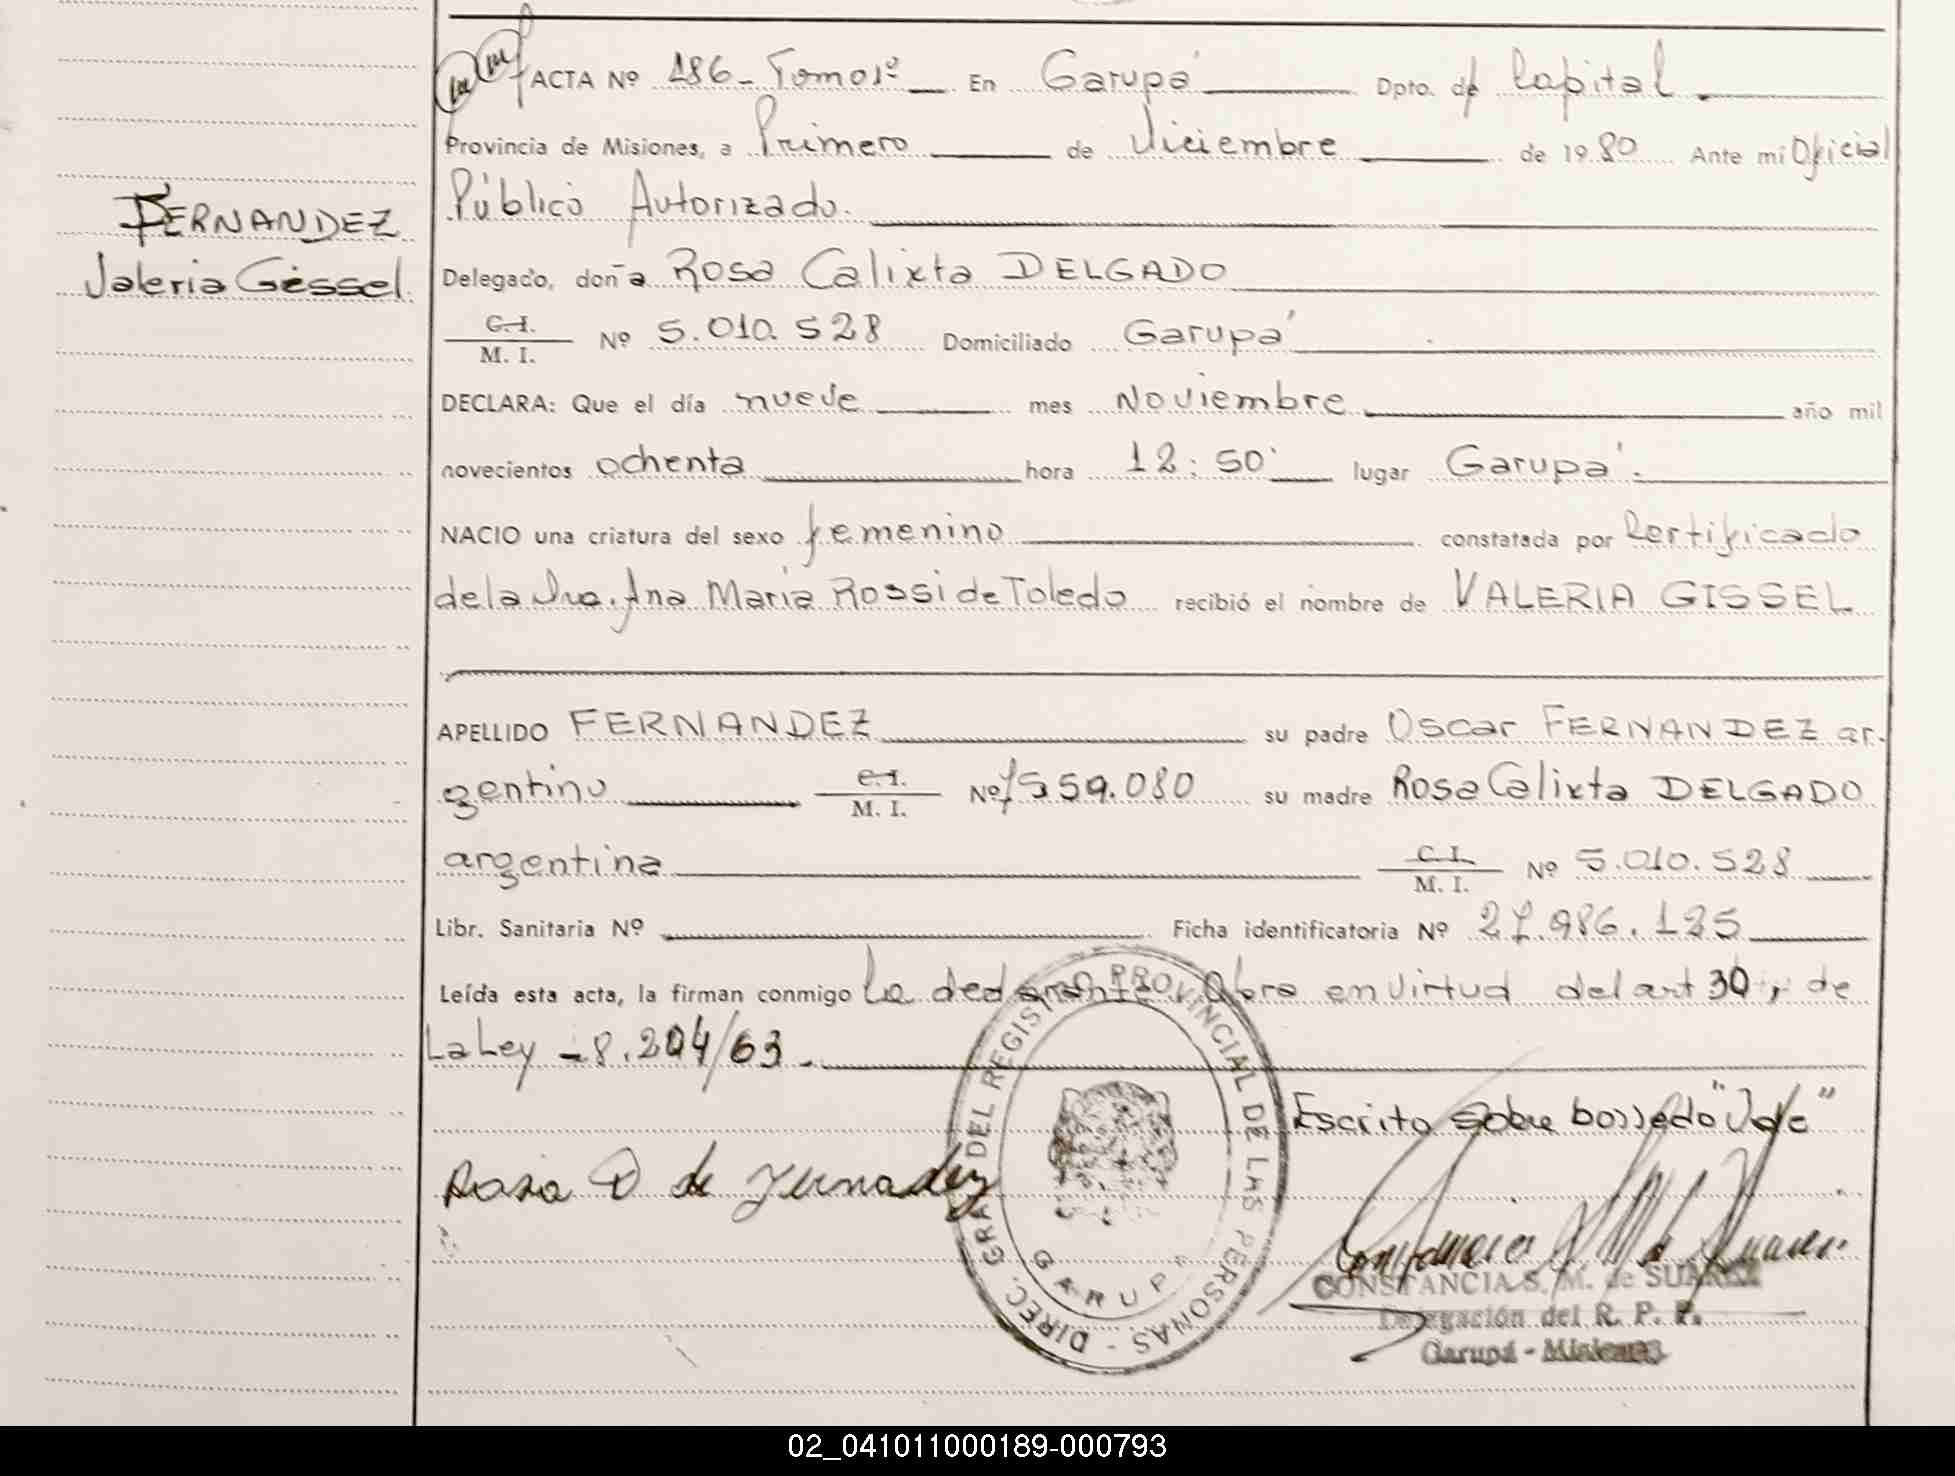 ACTA Nº 186 - Tomo 1º En Garupá Dpto. de Capital
Provincia de Misiones, a Primero de Diciembre de 1980 Ante mi Oficial
Público Autorizado.
FERNANDEZ
Valeria Gissel
Delegado, doña Rosa Calixta DELGADO
C.I.
M. I. Nº 5.010.528 Domiciliado Garupá
DECLARA: Que el día nueve mes Noviembre año mil
novecientos ochenta hora 12:50 lugar Garupá.
NACIO una criatura del sexo femenino constatada por Certificado
de la Dra. Ana Maria Rossi de Toledo recibió el nombre de VALERIA GISSEL
APELLIDO FERNANDEZ su padre Oscar FERNANDEZ ar.
gentino C.I.
M. I. Nº 7.559.080 su madre Rosa Calixta DELGADO
argentina C.I.
M. I. Nº 5.010.528
Libr. Sanitaria Nº Ficha identificatoria Nº 27.986.125
Leída esta acta, la firman conmigo La declarante. Obra en virtud del art 30, de
La Ley -8.204/63.-
Escrito sobre borrado "
Rosa D de Fernandez
DIREC. GRAL DEL REGISTRO PROVINCIAL DE LAS PERSONAS -
GARUPA
CONSTANCIA S. M. de SUAREZ
Delegación del R. P. P.
Garupá - Misiones
02_041011000189-000793